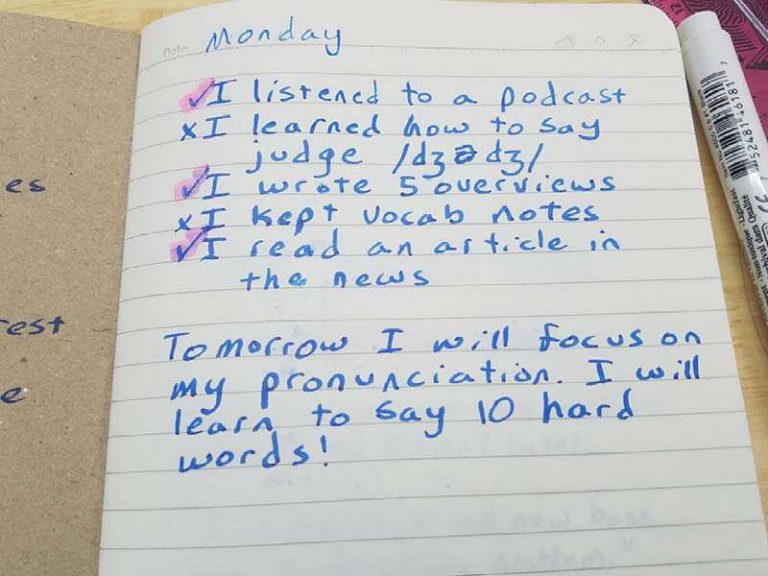 Note:
Monday
✓ I listened to a podcast
x I learned how to say
judge /dʒədʒ/
✓ I wrote 5 overviews
x I kept vocab notes
✓ I read an article in
the news
Tomorrow I will focus on
my pronunciation. I will
learn to say 10 hard
words!
es
rest
e